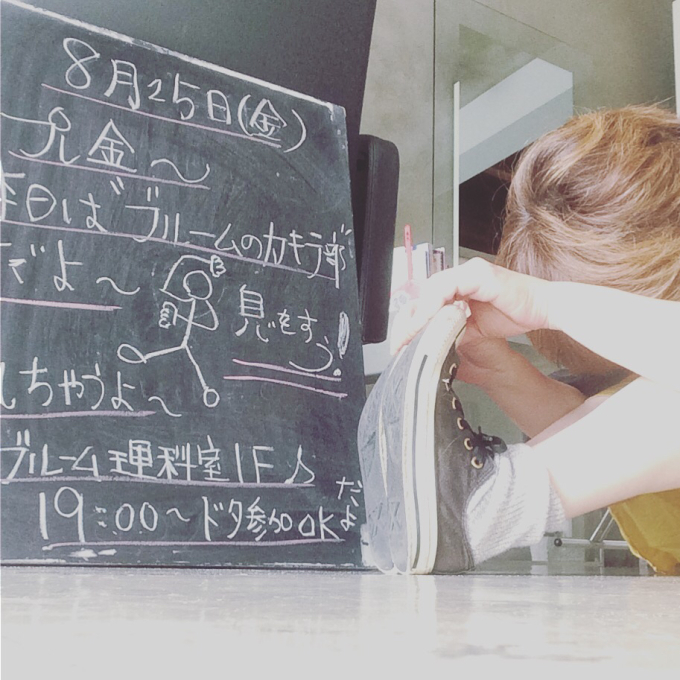 8月25日(金)
プレ金〜
本日はブルームのカキラ部
だよ〜
息をすう!
しちゃうよ〜
ブルーム理科室1F♪
19:00〜ドタ参加OK
だよ